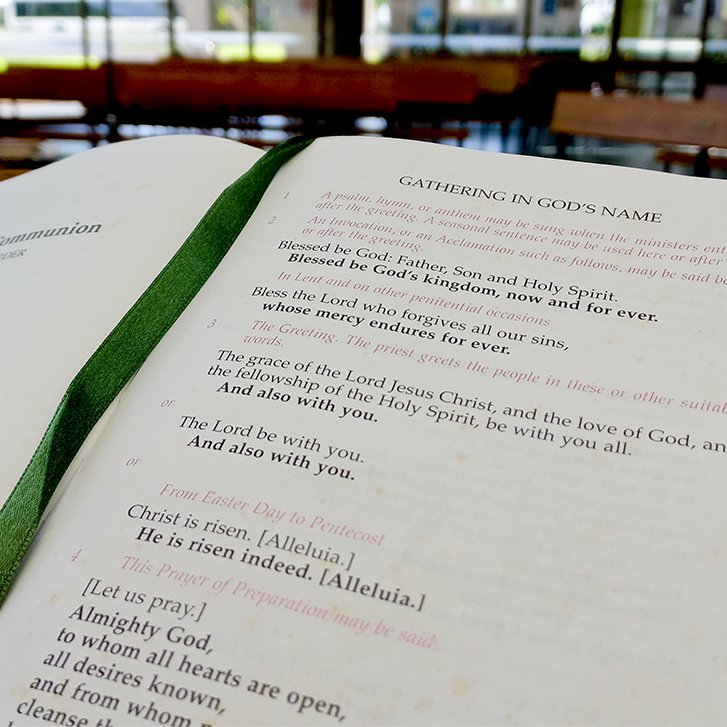 ommunion
RDER
GATHERING IN GOD'S NAME
1 A psalm, hymn, or anthem may be sung when the ministers
after the greeting. A seasonal sentence may be used here or after
2 An Invocation, or an Acclamation such as follows, may be said
or after the greeting.
Blessed be God: Father, Son and Holy Spirit.
Blessed be God's kingdom, now and for ever.
In Lent and on other penitential occasions
Bless the Lord who forgives all our sins,
whose mercy endures for ever.
3 The Greeting. The priest greets the people in these or other
words.
The grace of the Lord Jesus Christ, and the love of God,
the fellowship of the Holy Spirit, be with you all.
And also with you.
or
The Lord be with you.
And also with you.
or
From Easter Day to Pentecost
Christ is risen. [Alleluia.]
He is risen indeed. [Alleluia.]
4 This Prayer of Preparation may be said:
[Let us pray.]
Almighty God,
to whom all hearts are open,
all desires known,
and from whom
cleanse